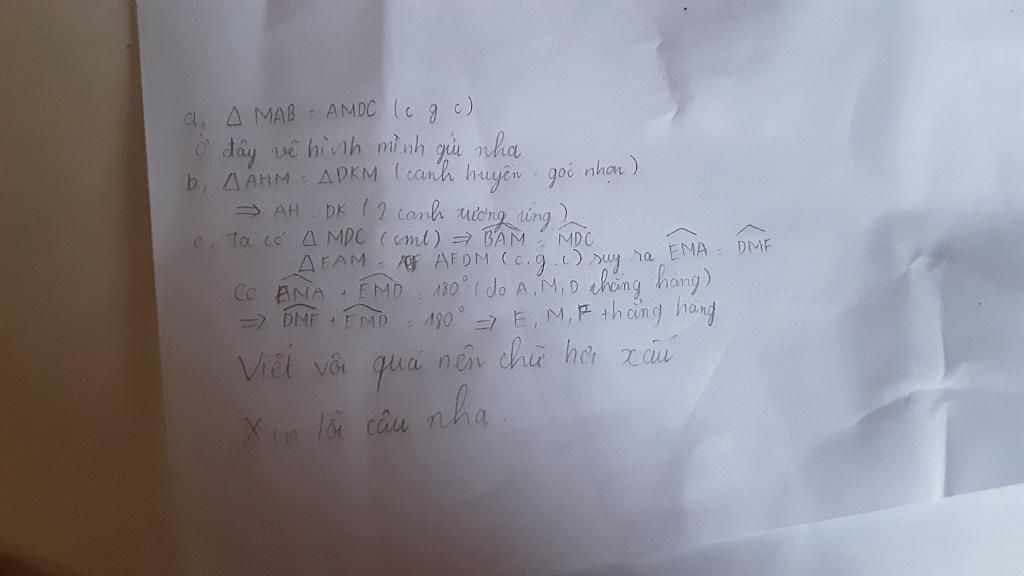 a, Δ MAB = ΔMDC (c g c)
Ở đây vẽ hình mình gửi nha
b, ΔAHM = ΔDKM (cạnh huyền - góc nhọn)
⇒ AH = DK (2 cạnh tương ứng)
c, Ta có Δ MDC (cmt) ⇒ BAM = MDC
ΔEAM = ΔFDM (c.g.c) suy ra EMA = DMF
Có EMA + EMD = 180° (do A, M, D thẳng hàng)
⇒ DMF + EMD = 180° ⇒ E, M, F thẳng hàng
Viết vội quá nên chữ hơi xấu
Xin lỗi cậu nha.